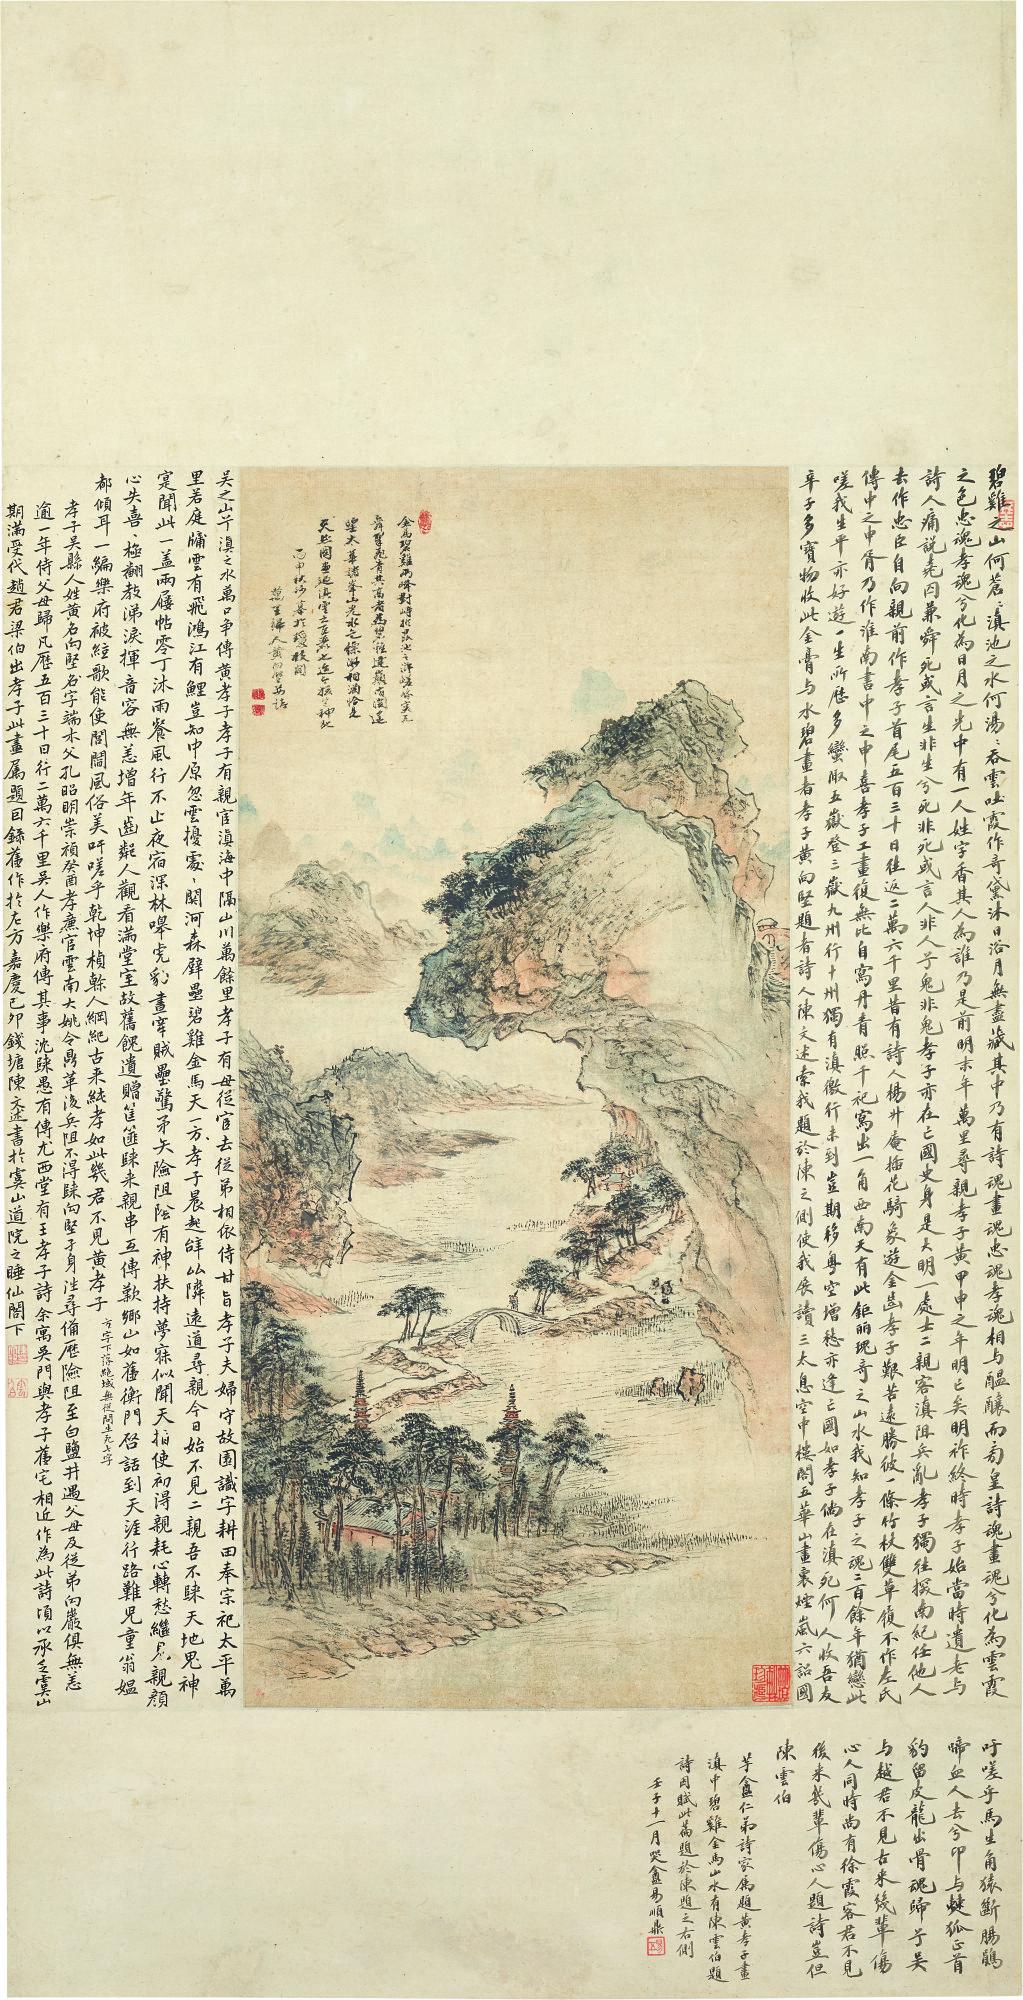 碧雞之山何蒼蒼滇池之水何湯湯吞雲吐霞作奇黛沐日浴月無盡藏其中乃有詩魂畫魂忠魂孝魂相与醞釀而芻皇詩魂畫魂兮化為雲霞
之色忠魂孝魂兮化為日月之光中有一人姓字香其人為誰乃是前明末年萬里尋親孝子黃甲申之年明亡矣明祚終時孝子始當時遺老与
詩人痛說堯囚兼舜死或言生非生兮死非死或言人非人兮鬼非鬼孝子亦在亡國史身是大明一處士二親客滇阻兵亂孝子獨往探南紀任他人
去作忠臣自向親前作孝子首尾五百三十日往返二萬六千里昔有詩人楊升庵插花騎象遊金齒孝子艱苦遠勝彼一條竹杖雙草履不作左氏
傳中之申胥乃作淮南書中之申喜孝子工畫復無比自寫丹青照千祀寫出一角西南天有此鉅麗瑰奇之山水我知孝子之魂二百餘年猶戀此
嗟我生平亦好遊一生所歷多蠻陬五嶽登三嶽九州行十州獨有滇徼行未到豈期移粵空增愁亦逢亡國如孝子倘在滇死何人收吾友
辛子多寶物收此金膏与水碧畫者孝子黃向堅題者詩人陳文述索我題於陳之側使我展讀三太息空中樓閣五華山畫裏煙嵐六詔國
吁嗟乎馬生角猿斷腸鵑
啼血人去兮印与𥿄狐正首
豹留皮龍出骨魂歸兮吴
与越君不見古來幾輩傷
心人同時尚有徐霞客君不見
後來幾輩傷心人題詩豈但
陳雲伯
芋盦仁弟詩家屬題黃孝子畫
滇中碧雞金馬山水有陳雲伯題
詩因賦此篇題於陳題之右側
壬子十一月哭盦易順鼎
金馬碧雞兩峰對峙於昆池之滸嵯峩突兀
丙申秋
吴之山兮滇之水萬口争傳黃孝子孝子有親宦滇海中隔山川萬餘里孝子有母從官去從弟相依侍甘旨孝子夫婦守故園識字耕田奉宗祀太平萬
里若庭牖雲有飛鴻江有鯉豈知中原忽雲擾處處關河森壁壘碧雞金馬天一方孝子晨起辭山隣遠道尋親今日始不見二親吾不歸天地鬼神
寔聞此一蓋兩屐帖零丁沐雨餐風行不止夜宿深林嘷虎豹晝穿賊壘驚矛矢險阻陰有神扶持夢寐似聞天指使初得親耗心轉愁繼見親顏
心失喜極翻教涕淚揮音容無恙增年齒鄰人觀看滿堂室故舊餽遺贈筐篚歸來親串互傳歎鄉山如舊衡門啓話到天涯行路難兒童翁媼
都傾耳一編樂府被絃歌能使閭閻風俗美吁嗟乎乾坤楨榦人綱紀古來純孝如此幾君不見黃孝子
方字下落絶域無從問生死七字
孝子吴縣人姓黃名向堅字端木父孔昭明崇禎癸酉孝廉官雲南大姚令鼎革後兵阻不得歸向堅子身㳀尋備歷險阻至白鹽井遇父母及從弟向嚴俱無恙
逾一年侍父母歸凡歷五百三十日行二萬六千里吴人作樂府傳其事沈歸愚有傳尤西堂有王孝子詩余寓吴門與孝子舊宅相近作為此詩頃以承乏虞山
期滿受代趙君梁伯出孝子此畫屬題因錄舊作於左方嘉慶己卯錢塘陳文述書於虞山道院之睡仙閣下